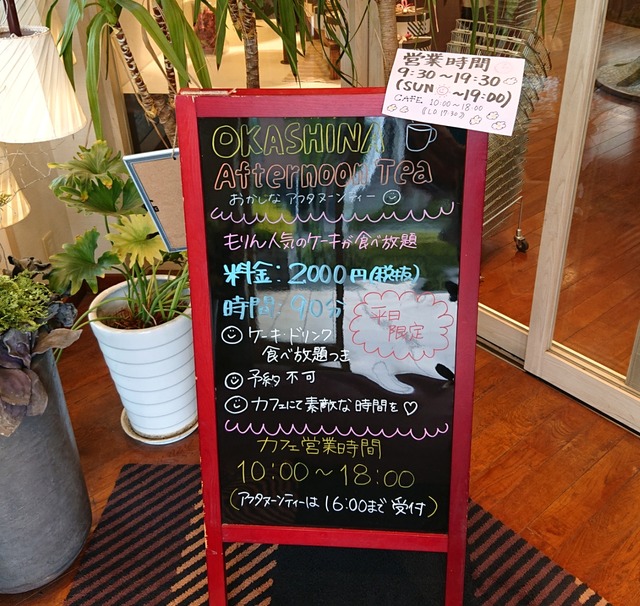 営業時間
9:30～19:30
(SUN ～19:00)
CAFE 10:00～18:00
(L.O 17:30)
OKASHINA
Afternoon Tea
おかしな アフタヌーンティー
もりん人気のケーキが食べ放題
料金:2000円(税抜)
時間:90分
平日
限定
ケーキ・ドリンク
食べ放題つき
予約不可
カフェにて素敵な時間を♡
カフェ営業時間
10:00～18:00
(アフタヌーンティーは16:00まで受付)